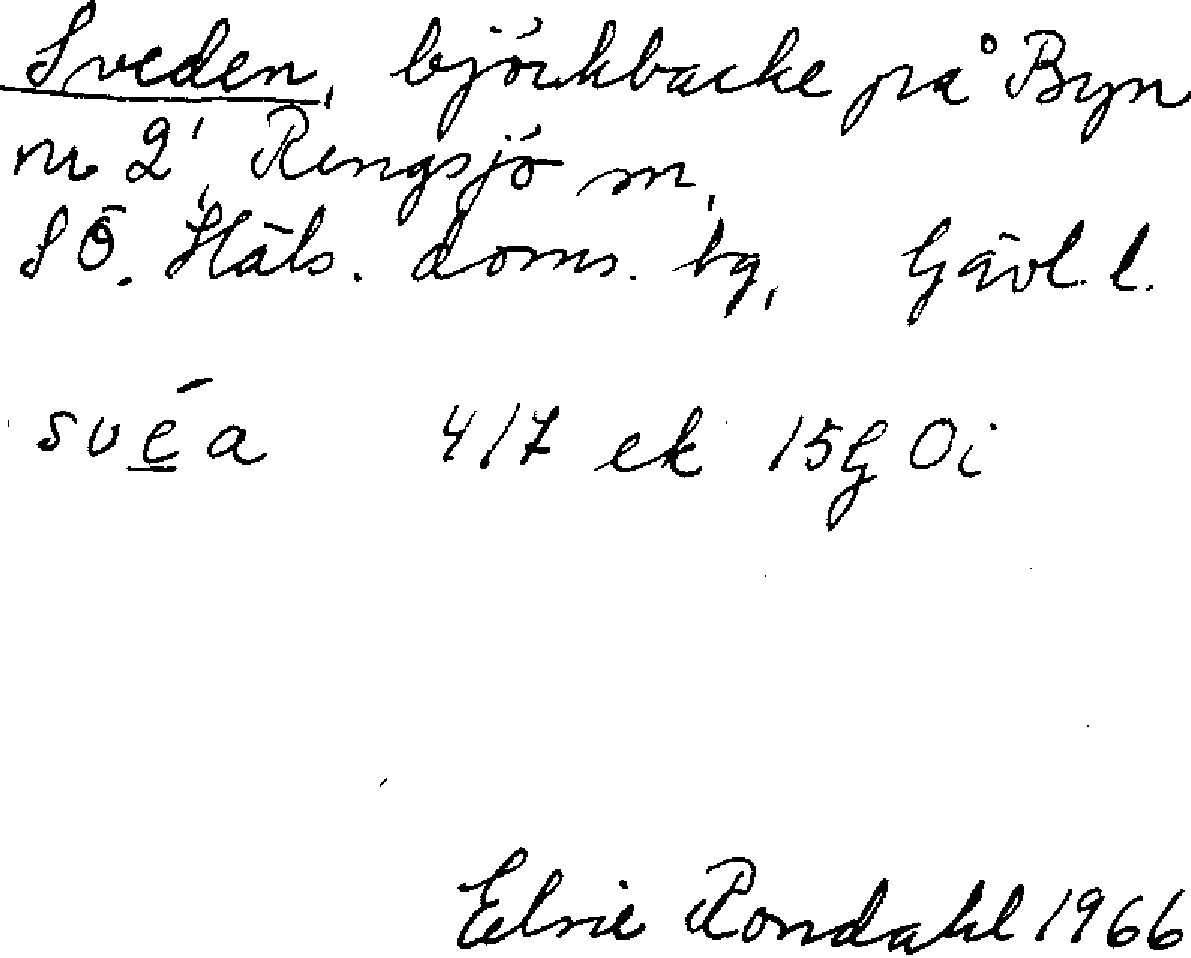 Sveden, björkbacke på Byn
nr 2', Rengsjö sn,
SÖ. Häls. doms. bg, Gävl. l.
svéa 417 ek 15G 0i
Elvie Rondahl 1966